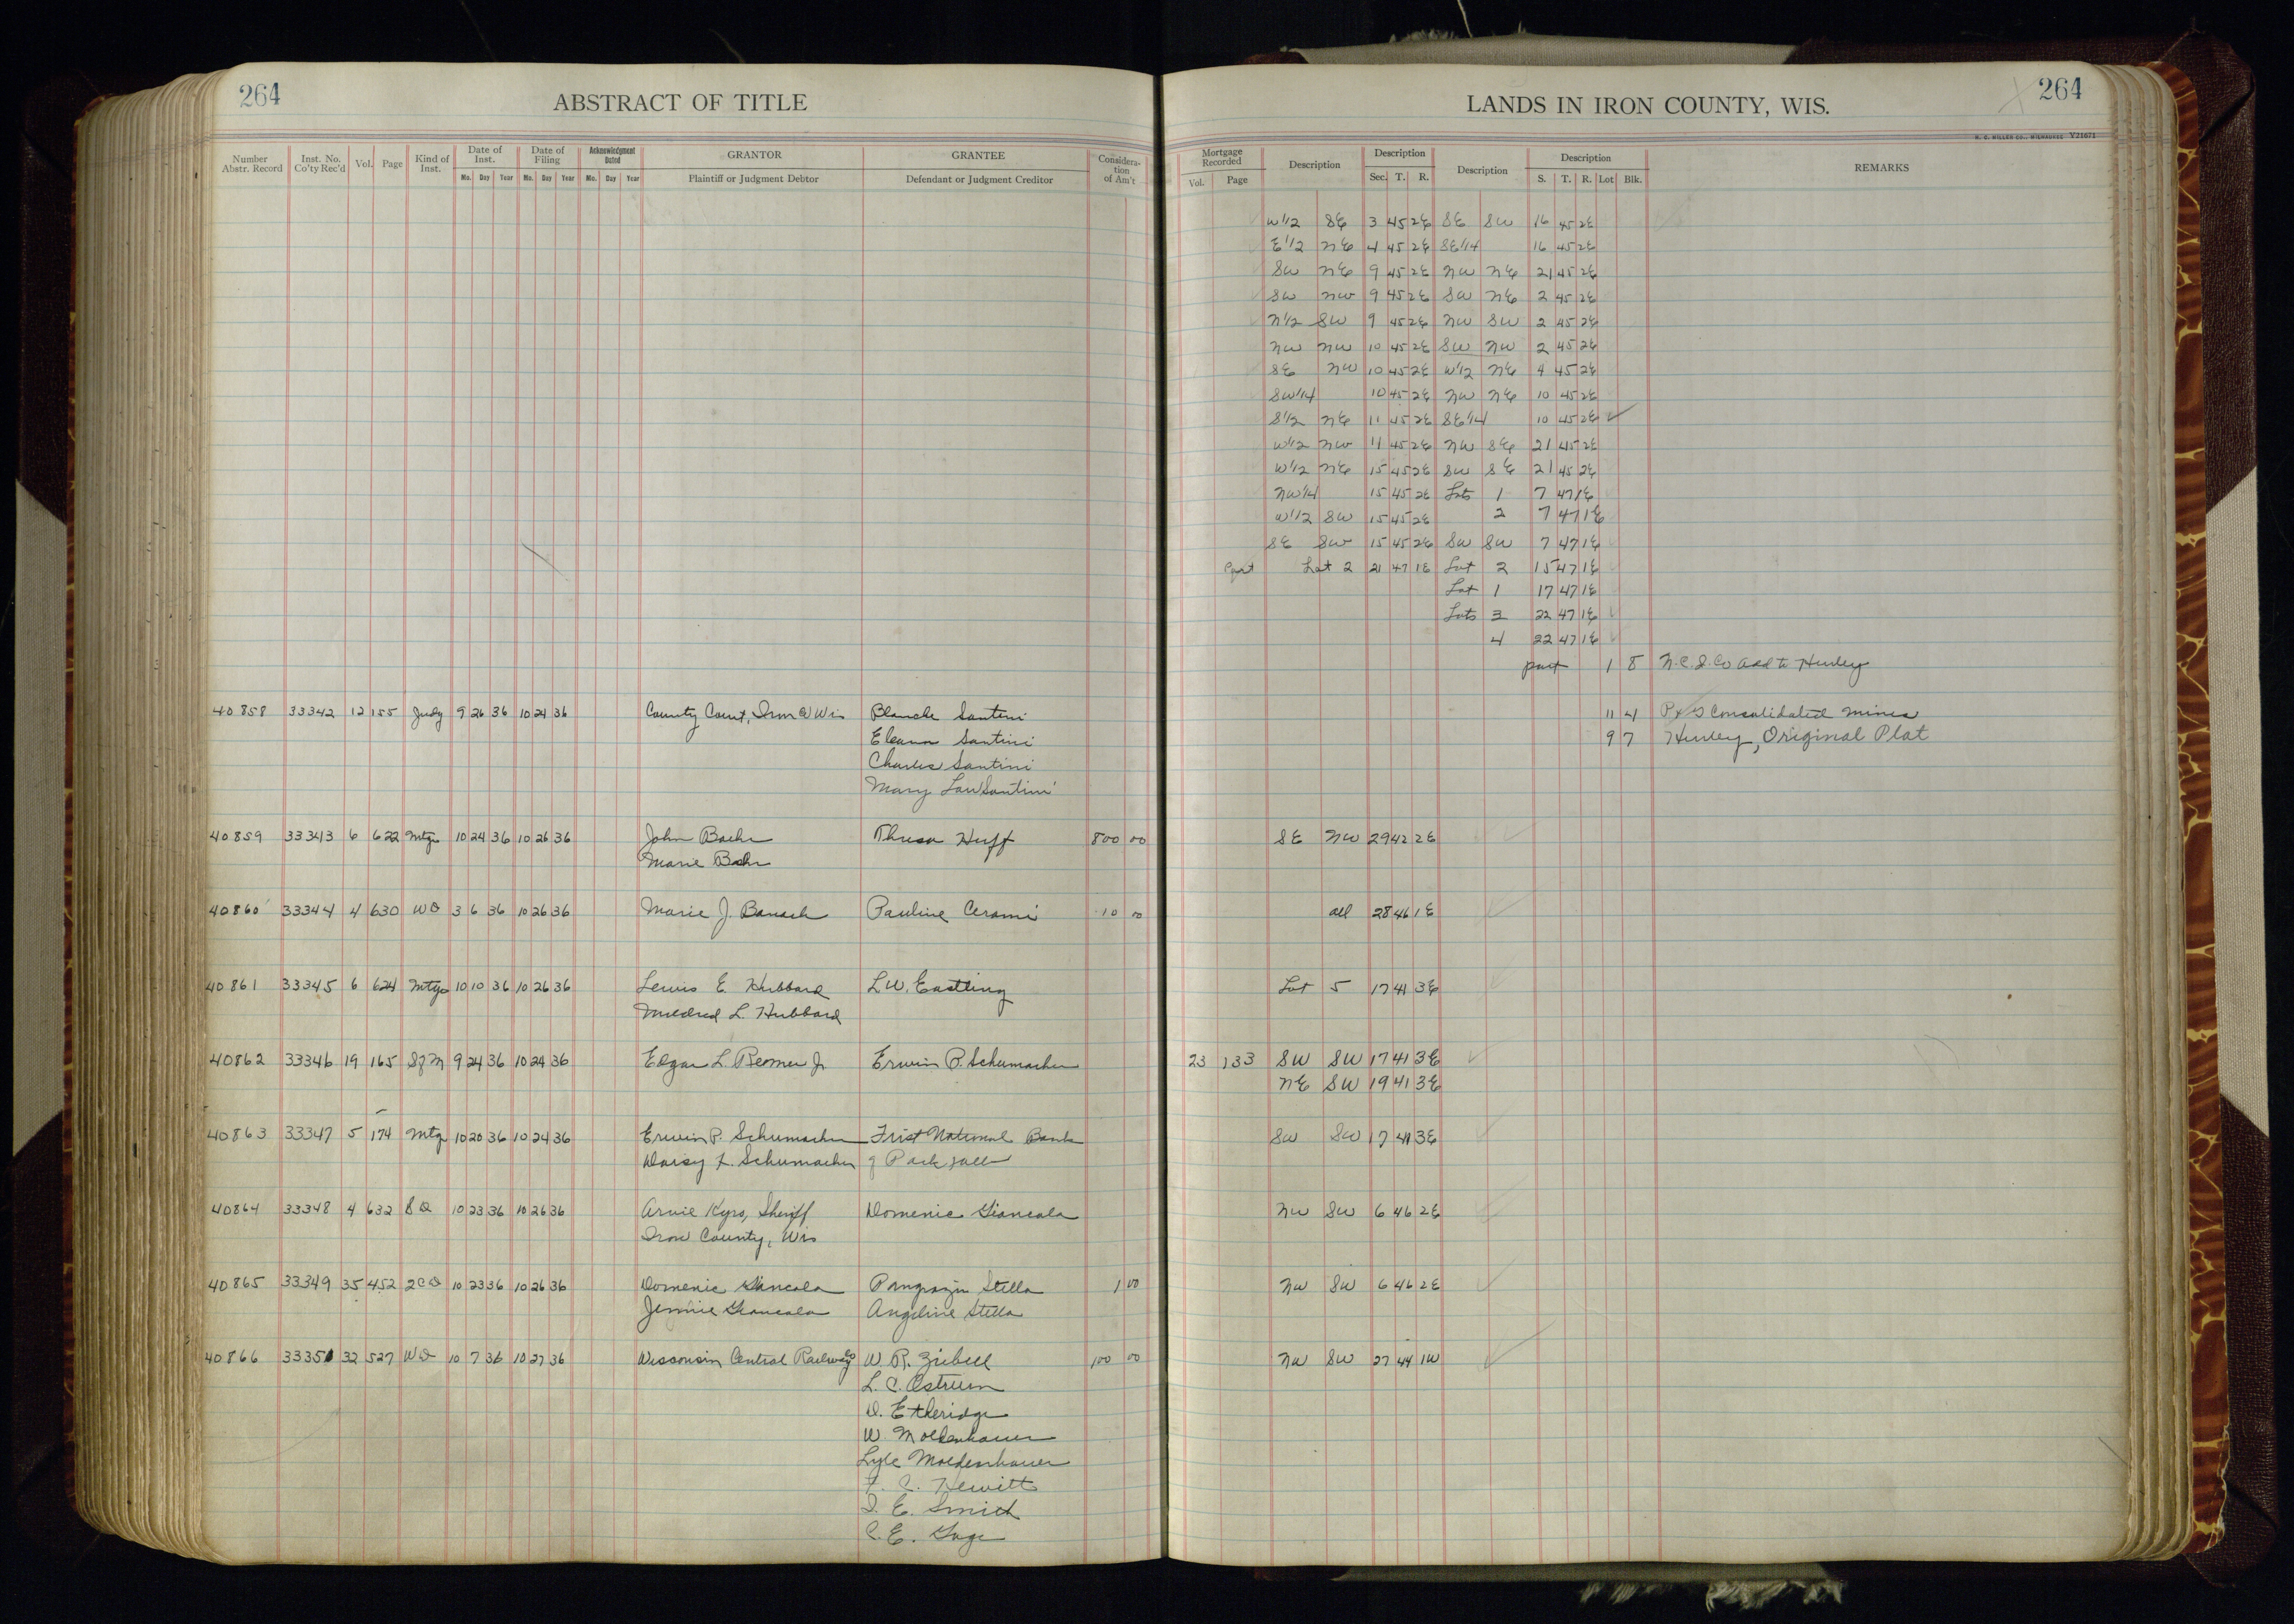 264
ABSTRACT OF TITLE
Number Abstr. Record Inst. No. Co'ty Rec'd Vol. Page Kind of Inst. Date of Inst. Date of Filing Acknowledgment Dated GRANTOR GRANTEE Consideration of Am't
Mo. Day Year Mo. Day Year Mo. Day Year Plaintiff or Judgment Debtor Defendant or Judgment Creditor
40858 33342 12 155 Judg 9 26 36 10 24 36 County Court, Iron Co Wis Blanche Santini
Eleanor Santini
Charles Santini
Mary Lou Santini
40859 33343 6 622 Mtge 10 24 36 10 26 36 John Baehr Thresa Huff 800 00
Marie Baehr
40860 33344 4 630 WD 3 6 36 10 26 36 Marie J. Banach Pauline Cerami 10 00
40861 33345 6 624 Mtge 10 10 36 10 26 36 Lewis E Hubbard L.W. Eastling
Mildred L. Hubbard
40862 33346 19 165 SfM 9 24 36 10 24 36 Edgar L. Reomer Jr Erwin P. Schumacher
40863 33347 5 174 Mtg 10 20 36 10 24 36 Erwin P. Schumacher Frist National Bank
Daisy L. Schumacher of Park Falls
40864 33348 4 632 SD 10 23 36 10 26 36 Arvie Kyro, Sheriff Domenic Giancola
Iron County, Wis
40865 33349 35 452 2CD 10 23 36 10 26 36 Domenic Giancola Pangrazin Stella 1 00
Jennie Giancola Angeline Stella
40866 33350 32 527 WD 10 7 36 10 27 36 Wisconsin Central Railway Co W. R. Ziebell 100 00
L. C. Ostrum
D. Etheridge
W. Moldenhauer
Lyle Moldenhauer
F. C. Hewitt
I. E. Smith
C. E. Gage
LANDS IN IRON COUNTY, WIS.
264
H. C. MILLER CO., MILWAUKEE Y21671
Mortgage Recorded Description Description Description Description REMARKS
Vol. Page Sec. T. R. S. T. R. Lot Blk.
W 1/2 SE 3 45 2E SE SW 16 45 2E
E 1/2 NE 4 45 2E SE 1/4 16 45 2E
SW NE 9 45 2E NW NE 21 45 2E
SW NW 9 45 2E SW NE 2 45 2E
N 1/2 SW 9 45 2E NW SW 2 45 2E
NW NW 10 45 2E SW NW 2 45 2E
SE NW 10 45 2E W 1/2 NE 4 45 2E
SW 1/4 10 45 2E NW NE 10 45 2E
S 1/2 NE 11 45 2E SE 1/4 10 45 2E
W 1/2 NW 11 45 2E NW SE 21 45 2E
W 1/2 NE 15 45 2E SW SE 21 45 2E
NW 1/4 15 45 2E Lots 1 7 47 1E
W 1/2 SW 15 45 2E 2 7 47 1E
SE SW 15 45 2E SW SW 7 47 1E
Part Lot 2 21 47 1E Lot 2 15 47 1E
Lot 1 17 47 1E
Lots 3 22 47 1E
4 22 47 1E
part 1 8 N.C.I. Co Add to Hurley
11 4 P & G Consolidated Mines
9 7 Hurley, Original Plat
SE NW 29 42 2E
all 28 46 1E
Lot 5 17 41 3E
23 133 SW SW 17 41 3E
NE SW 19 41 3E
SW SW 17 41 3E
NW SW 6 46 2E
NW SW 6 46 2E
NW SW 27 44 1W